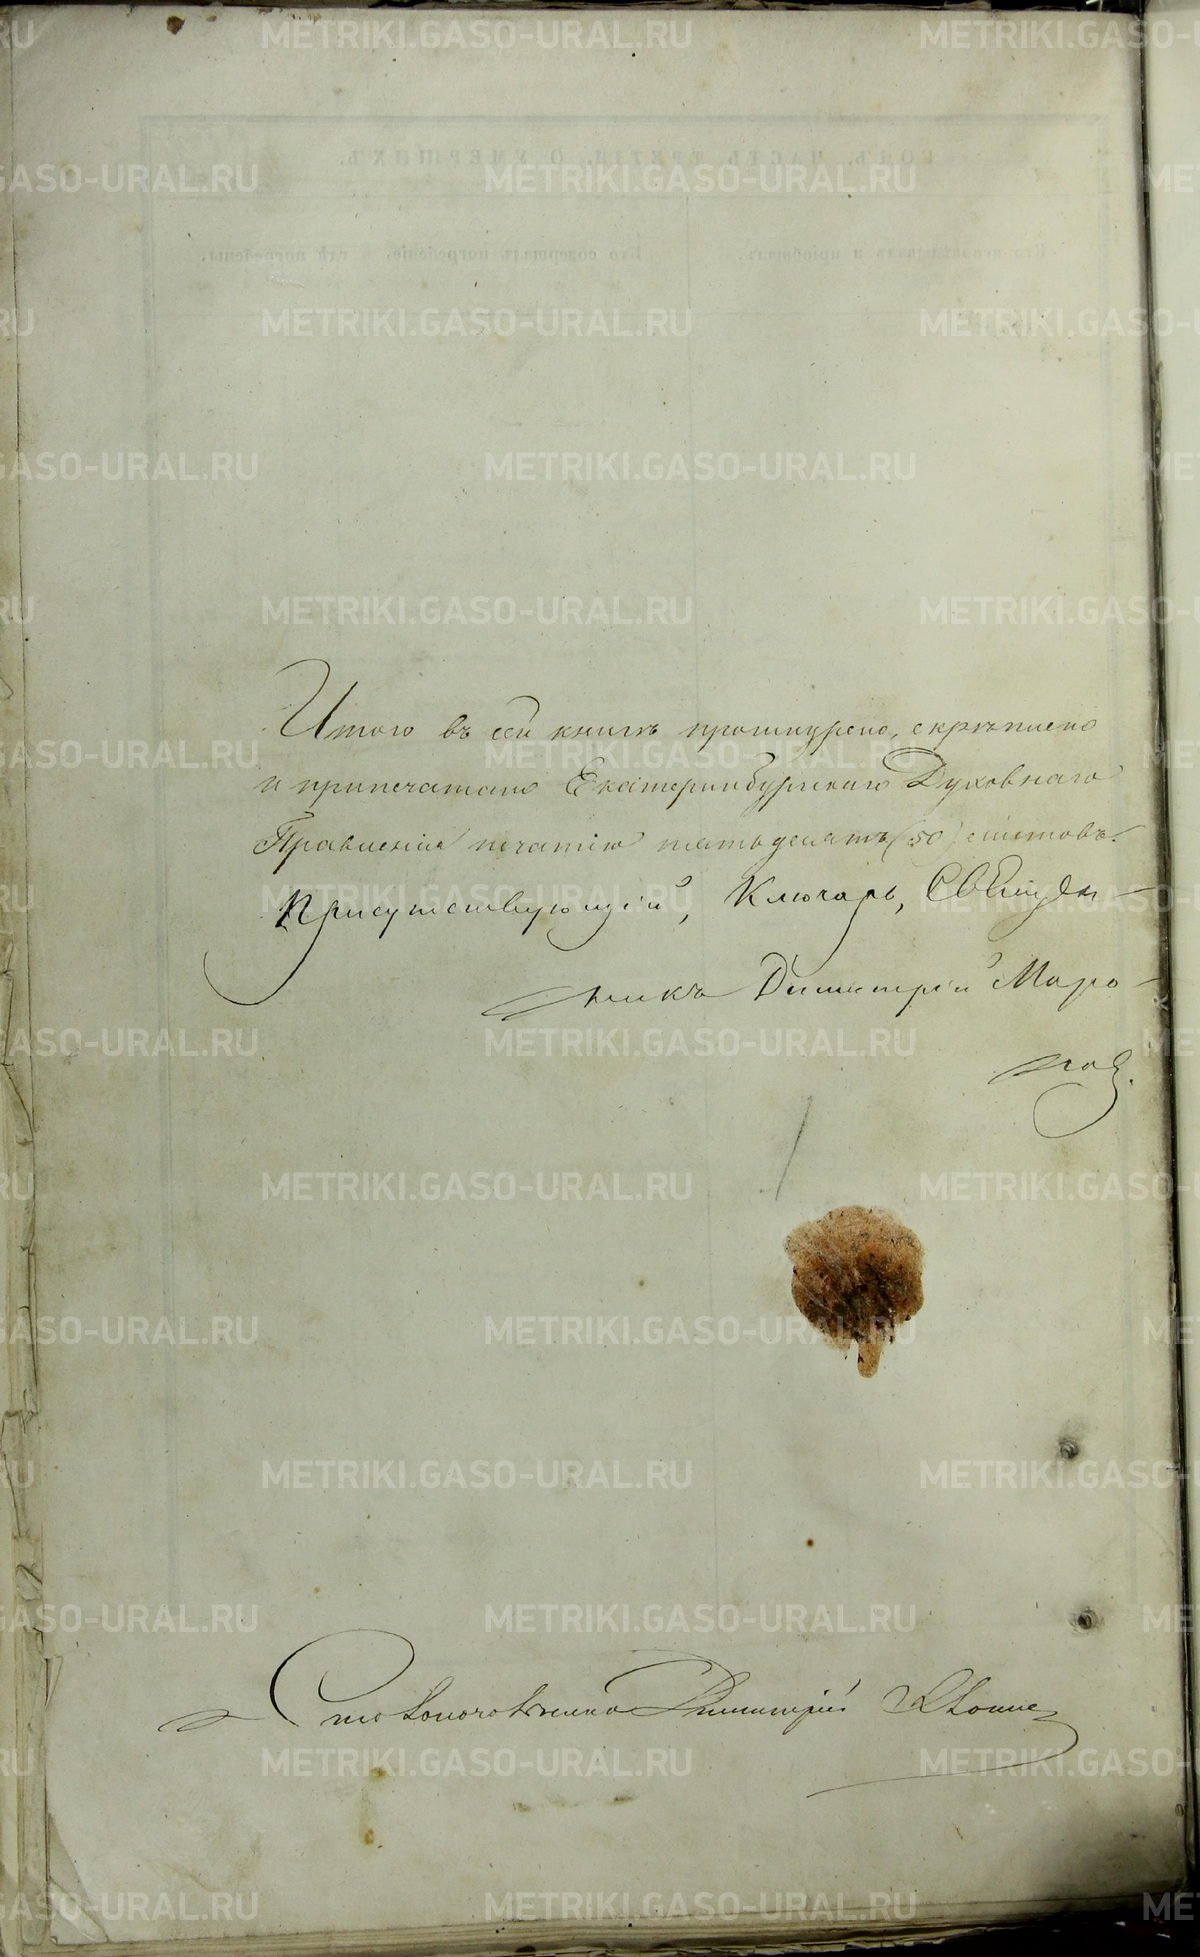 Итого въ сей книгѣ прошнурено, скрѣплено
и припечатано Екатеринбургскаго Духовнаго
Правленія печатію пятьдесятъ (50) листовъ.
Присутствующій, Ключарь, Священ-
никъ Димитрій
Столоначальникъ Димитрій
METRIKI.GASO-URAL.RU